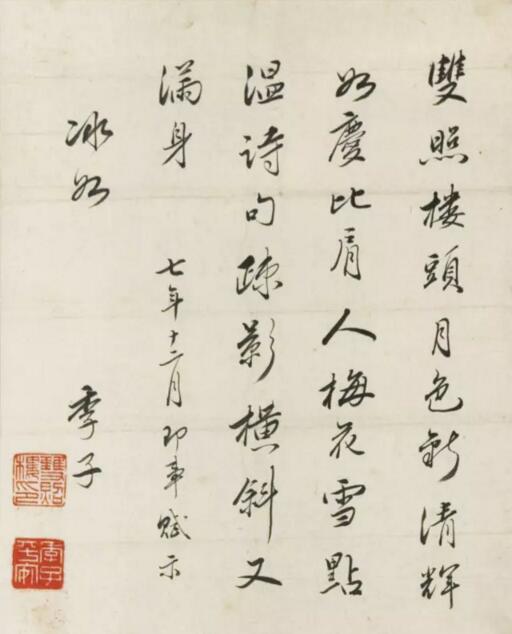 雙照樓頭月色新清輝
如慶比肩人梅花雪點
溫詩句疎影橫斜又
滿身
七年十二月即事賦示
冰如
季子
雙照樓印